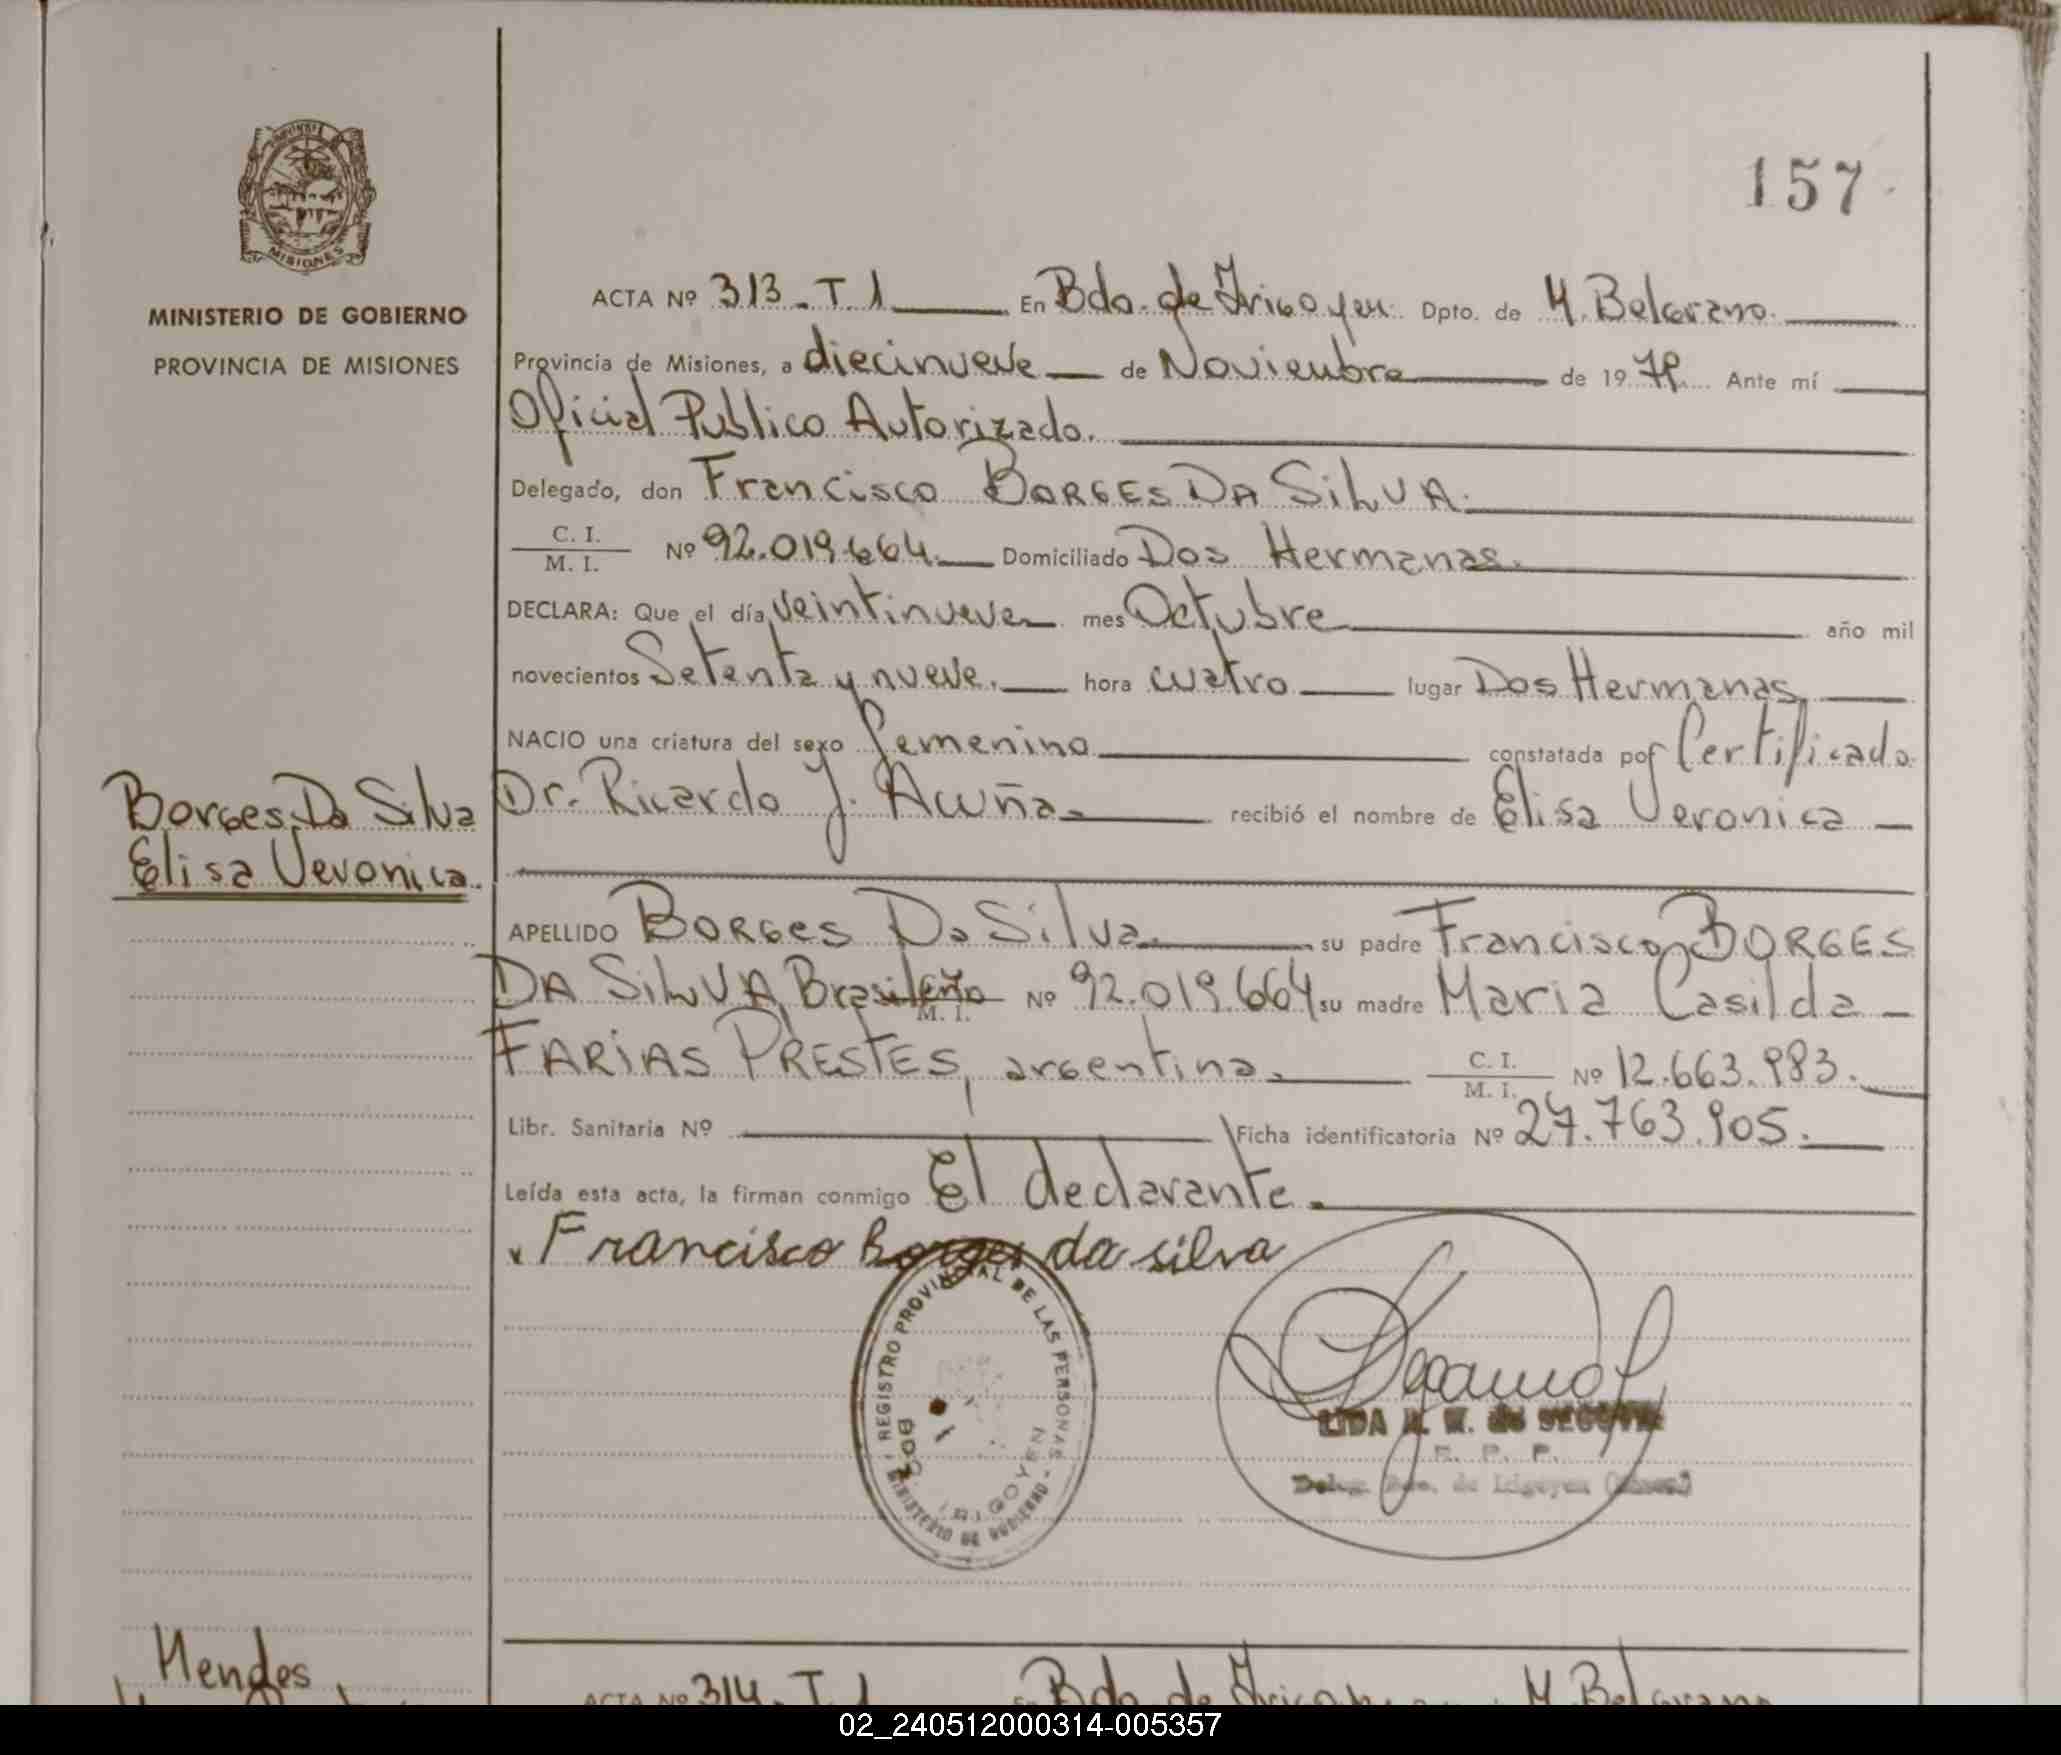 157
MINISTERIO DE GOBIERNO
PROVINCIA DE MISIONES
ACTA Nº 313 - T. 1 En Bdo. de Irigoyen. Dpto. de M. Belgrano.
Provincia de Misiones, a diecinueve de Noviembre de 1979. Ante mí
Oficial Publico Autorizado.
Delegado, don Francisco BORGES DA SILVA.
C. I.
M. I. Nº 92.019.664. Domiciliado Dos Hermanas.
DECLARA: Que el día veintinueve mes Octubre año mil
novecientos Setenta y nueve. hora cuatro lugar Dos Hermanas,
NACIO una criatura del sexo femenino constatada por Certificado
Borges Da Silva
Elisa Veronica.
Dr. Ricardo J. Acuña recibió el nombre de Elisa Veronica
APELLIDO Borges Da Silva. su padre Francisco BORGES
DA SILVA, Brasileño M. I. Nº 92.019.664 su madre Maria Casilda
FARIAS PRESTES, argentina. C. I.
M. I. Nº 12.663.983.
Libr. Sanitaria Nº Ficha identificatoria Nº 27.763.905.
Leída esta acta, la firman conmigo El declarante.
x Francisco Borges da silva
REGISTRO PROVINCIAL DE LAS PERSONAS
MINISTERIO DE GOBIERNO
BDO. IRIGOYEN
LIDA de SEGOVIA
Deleg. Bdo. de Irigoyen
Mendes
ACTA Nº 314 - T. 1 En Bdo. de Irigoyen M. Belgrano
MISIONES
02_240512000314-005357